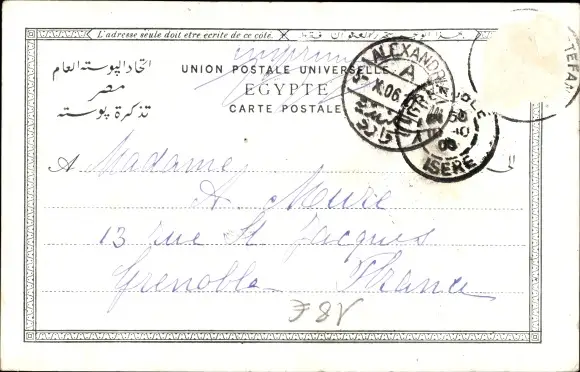 L'adresse seule doit être écrite de ce côté.
imprimé
اتحاد البوسته العام
مصر
تذكرة بوسته
UNION POSTALE UNIVERSELLE
EGYPTE
CARTE POSTALE
ALEXANDRI
A
X 06
GRENOBLE
ISÈRE
TEFAN
A Madame
A. Moure
13 rue St Jacques
Grenoble France
F8V